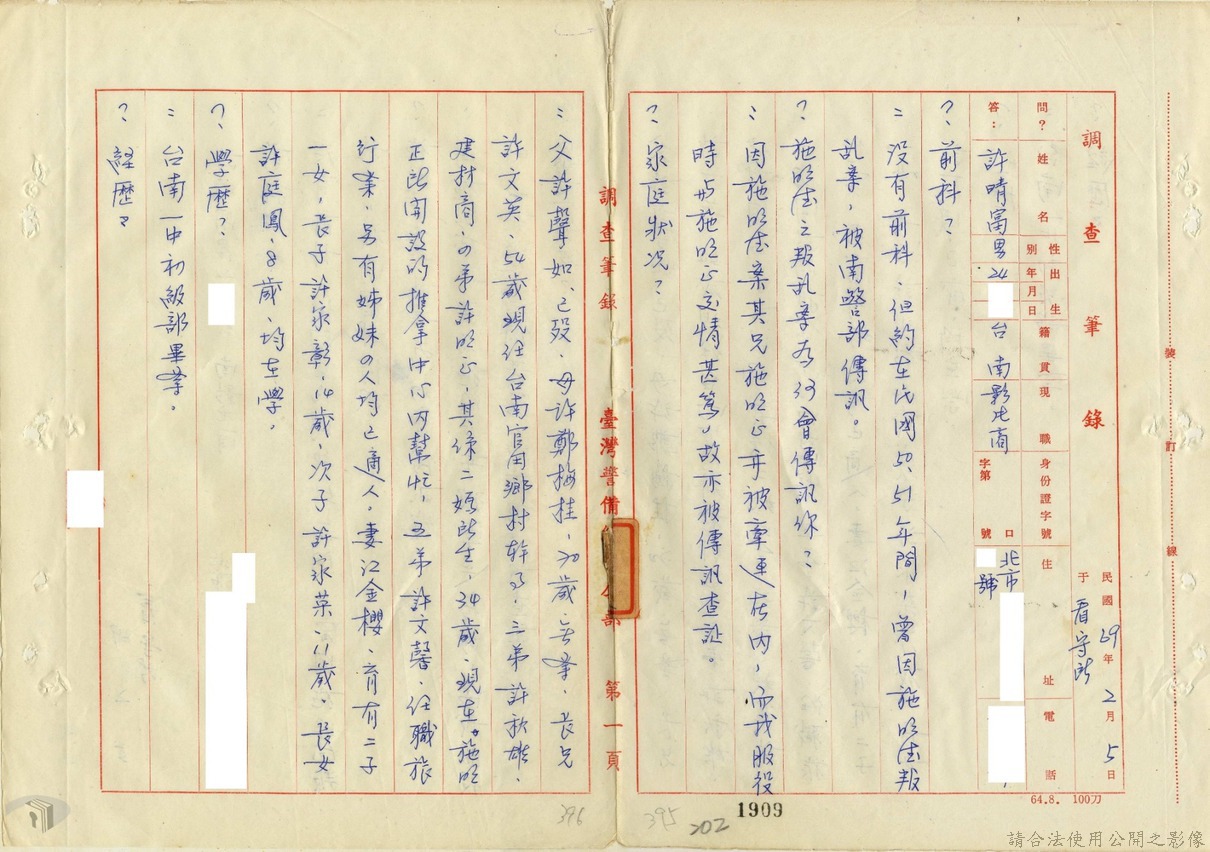 調查筆錄
民國69年2月5日
于看守所
問？ 姓名 性別 出生年月日 籍貫 現職 身份證字號 住址 電話
答： 許晴富 男 24 台南 影片商 字第 號 北市 號
？前科？
：沒有前科、但約在民國50、51年間，曾因施明德叛
亂案，被南警部傳訊。
？施明德之叛亂案為何會傳訊你？
：因施明德案其兄施明正亦被牽連在內，而我服役
時與施明正交情甚篤，故亦被傳訊查証。
？家庭狀況？
調查筆錄 臺灣警備 部 第一頁
：父許聲如、已歿、母許鄭梅桂，70歲、無業、長兄
許文英、54歲現任台南官田鄉村幹事、三弟許秋雄、
建材商、四弟許明正，其係二媽所生，34歲、現在施明
正所開設的推拿中心內幫忙，五弟許文馨、任職旅
行業，另有姊妹四人均已適人，妻江金櫻、育有二子
一女，長子許家彰、14歲、次子許家棻、11歲、長女
許庭鳳、8歲、均在學。
？學歷？
：台南一中初級部畢業。
？經歷？
64.8. 100刀
裝訂線
1909
202
395
396
請合法使用公開之影像